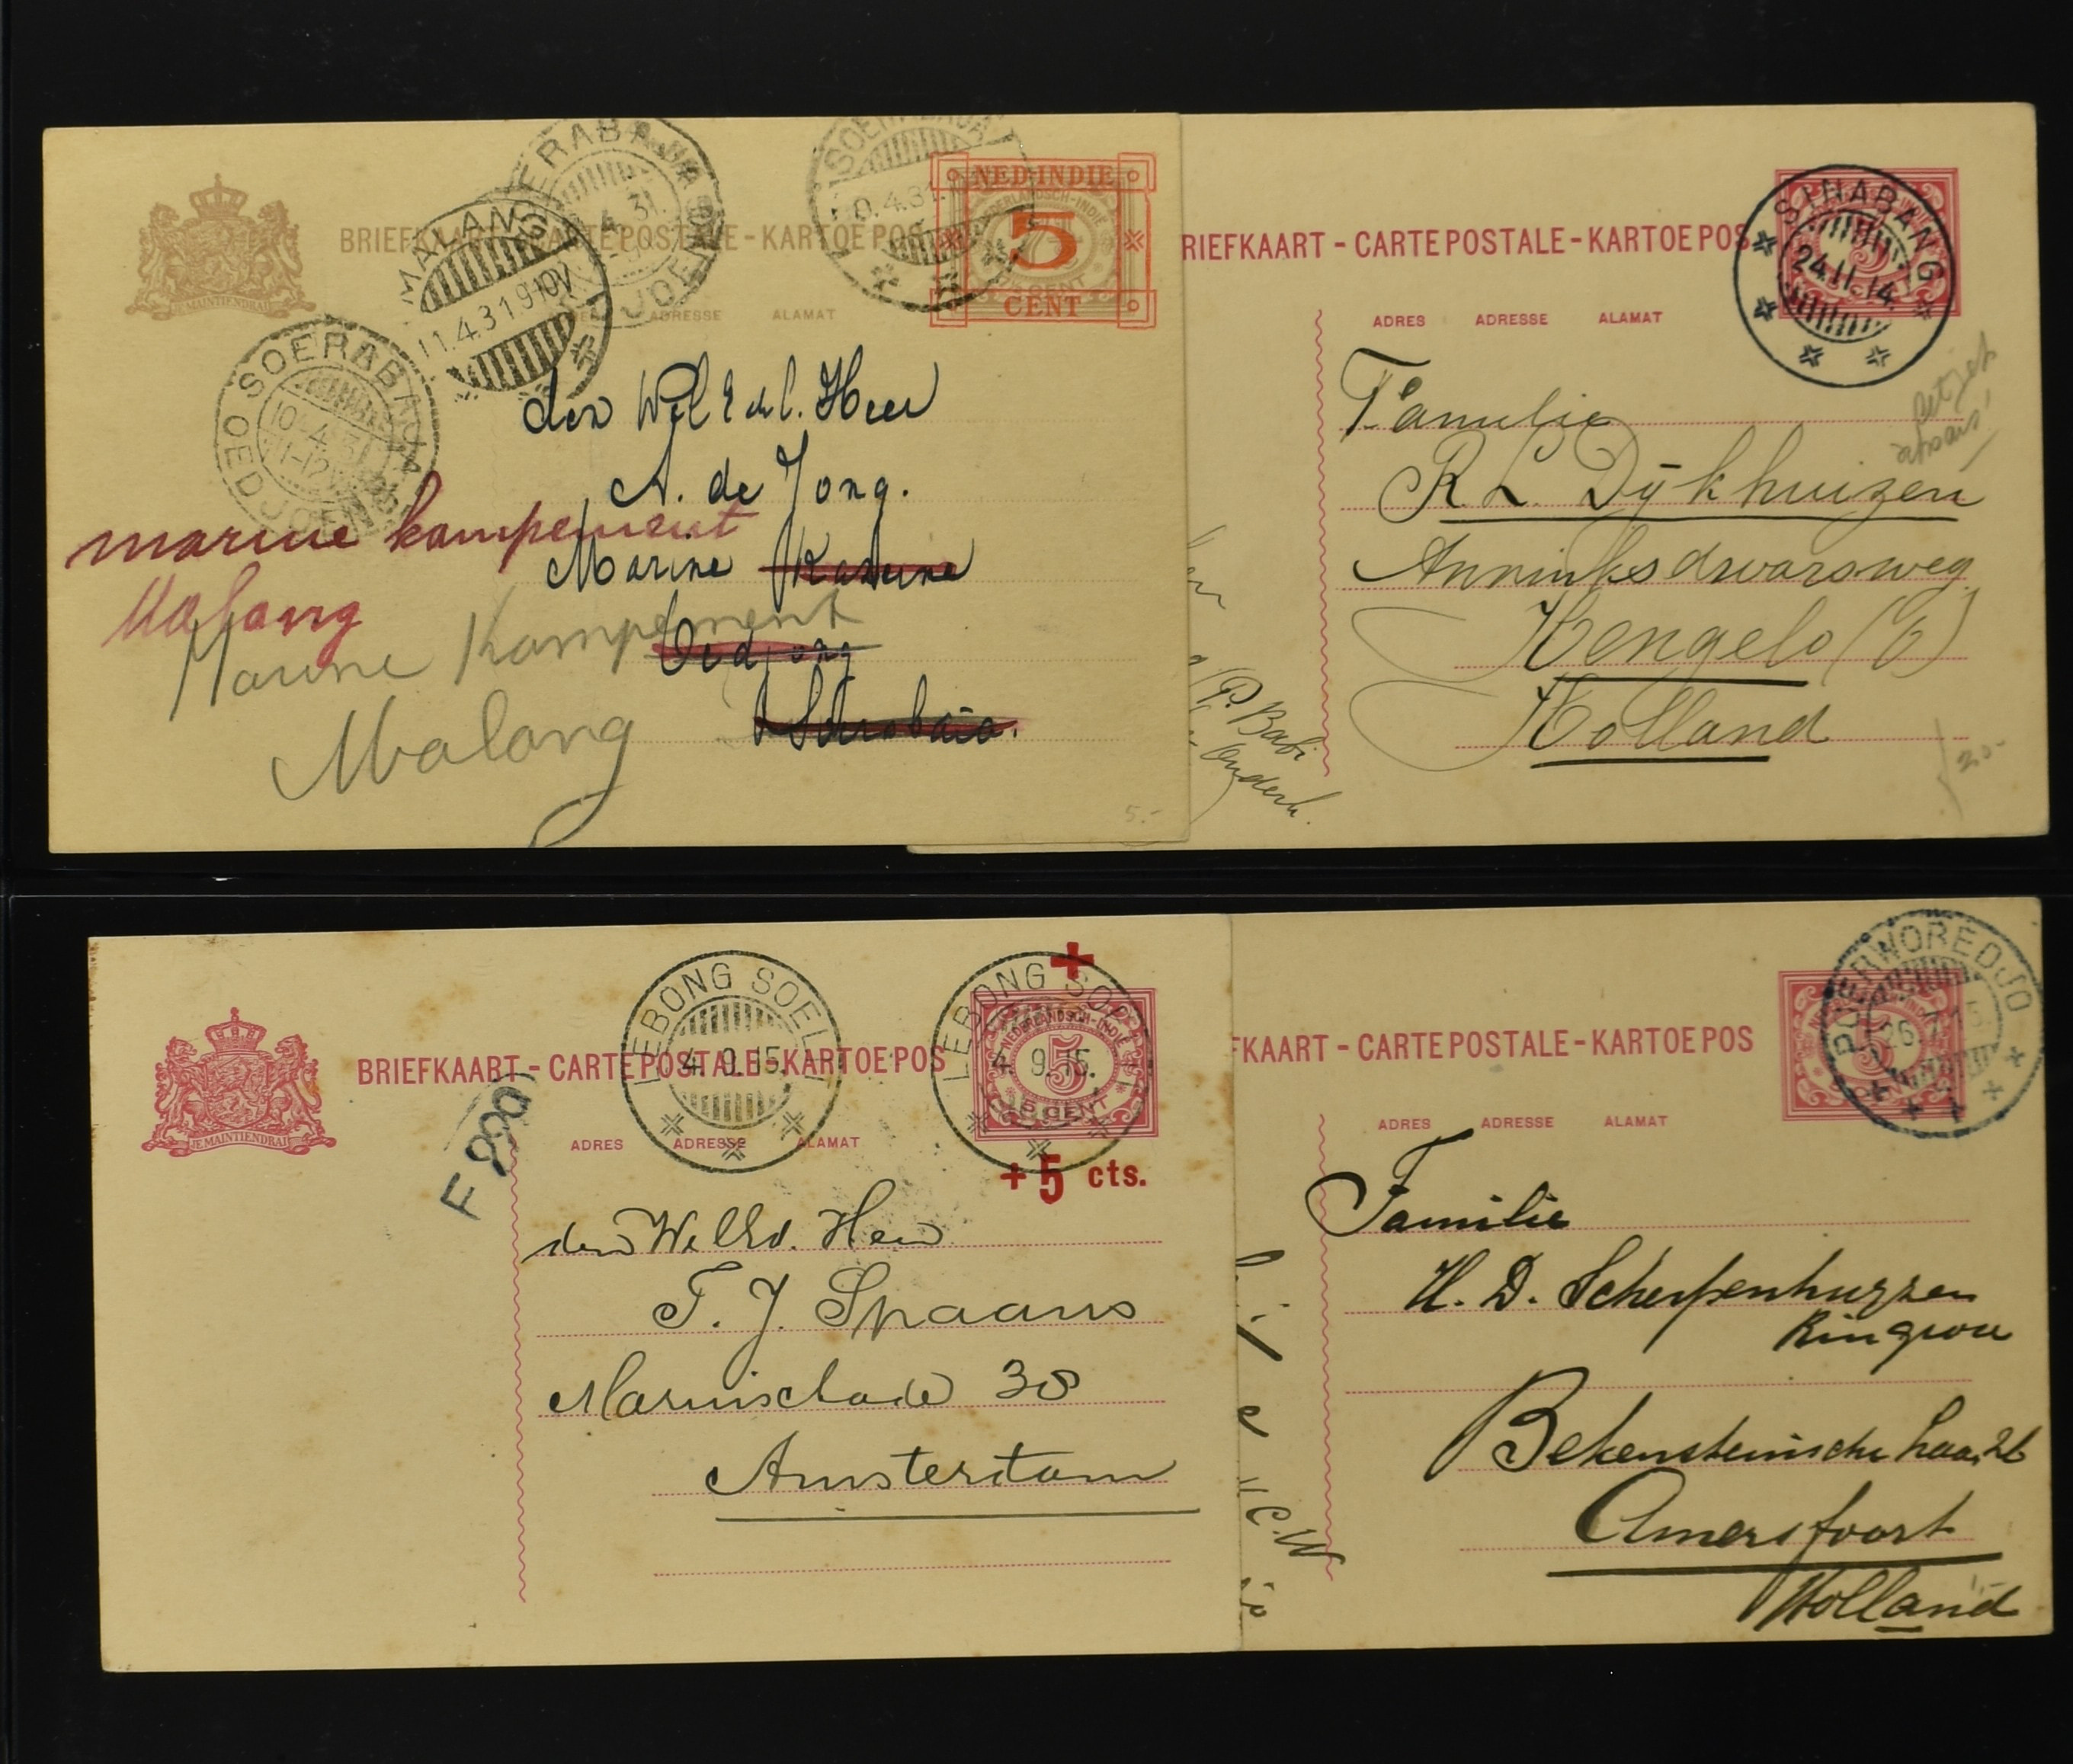 SOERABAJA OEDJOENG
10.4.31
11-12
MALANG
11.4.31 9-10V
SOERABAJA
BRIEFKAART - CARTE POSTALE - KARTOE POS
ADRESSE ALAMAT
JE MAINTIENDRAI
NED-INDIE
5
CENT
den WelEdel. Heer
A. de Jong.
Marine Kazerne
Oedjong
Soerabaia.
marine kampement
Malang
Marine Kampement
Malang
5.-
RIEFKAART - CARTE POSTALE - KARTOE POS
SINABANG
24.11.14
ADRES ADRESSE ALAMAT
Familie
R. L. Dijkhuizen
Anninksdwarsweg
Hengelo (O)
Holland
P. Babi
20.-
BRIEFKAART - CARTE POSTALE - KARTOE POS
JE MAINTIENDRAI
LEBONG SOELIT
4.9.15.
LEBONG SOELIT
4.9.15.
NEDERLANDSCH-INDIË
5
5 CENT
+ 5 cts.
ADRES ADRESSE ALAMAT
den WelEd. Heer
T. J. Spaans
Marnixkade 38
Amsterdam
FKAART - CARTE POSTALE - KARTOE POS
POERWOREDJO
26.7.15
5
ADRES ADRESSE ALAMAT
Familie
H. D. Scherpenhuyzen
Bekensteinsche Laan 26
Amersfoort
Holland